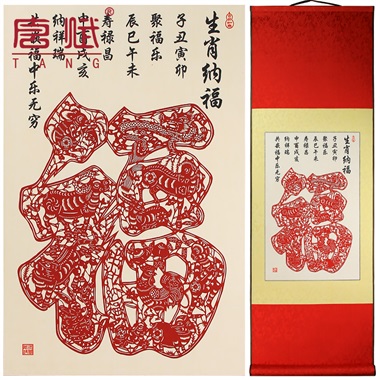 生肖纳福
子丑寅卯
聚福乐
辰巳午未
寿禄昌
申酉戌亥
纳祥瑞
共歌福中乐无穷
唐赋
TANG
福
生肖纳福
子丑寅卯
聚福乐
辰巳午未
寿禄昌
申酉戌亥
纳祥瑞
共歌福中乐无穷
福